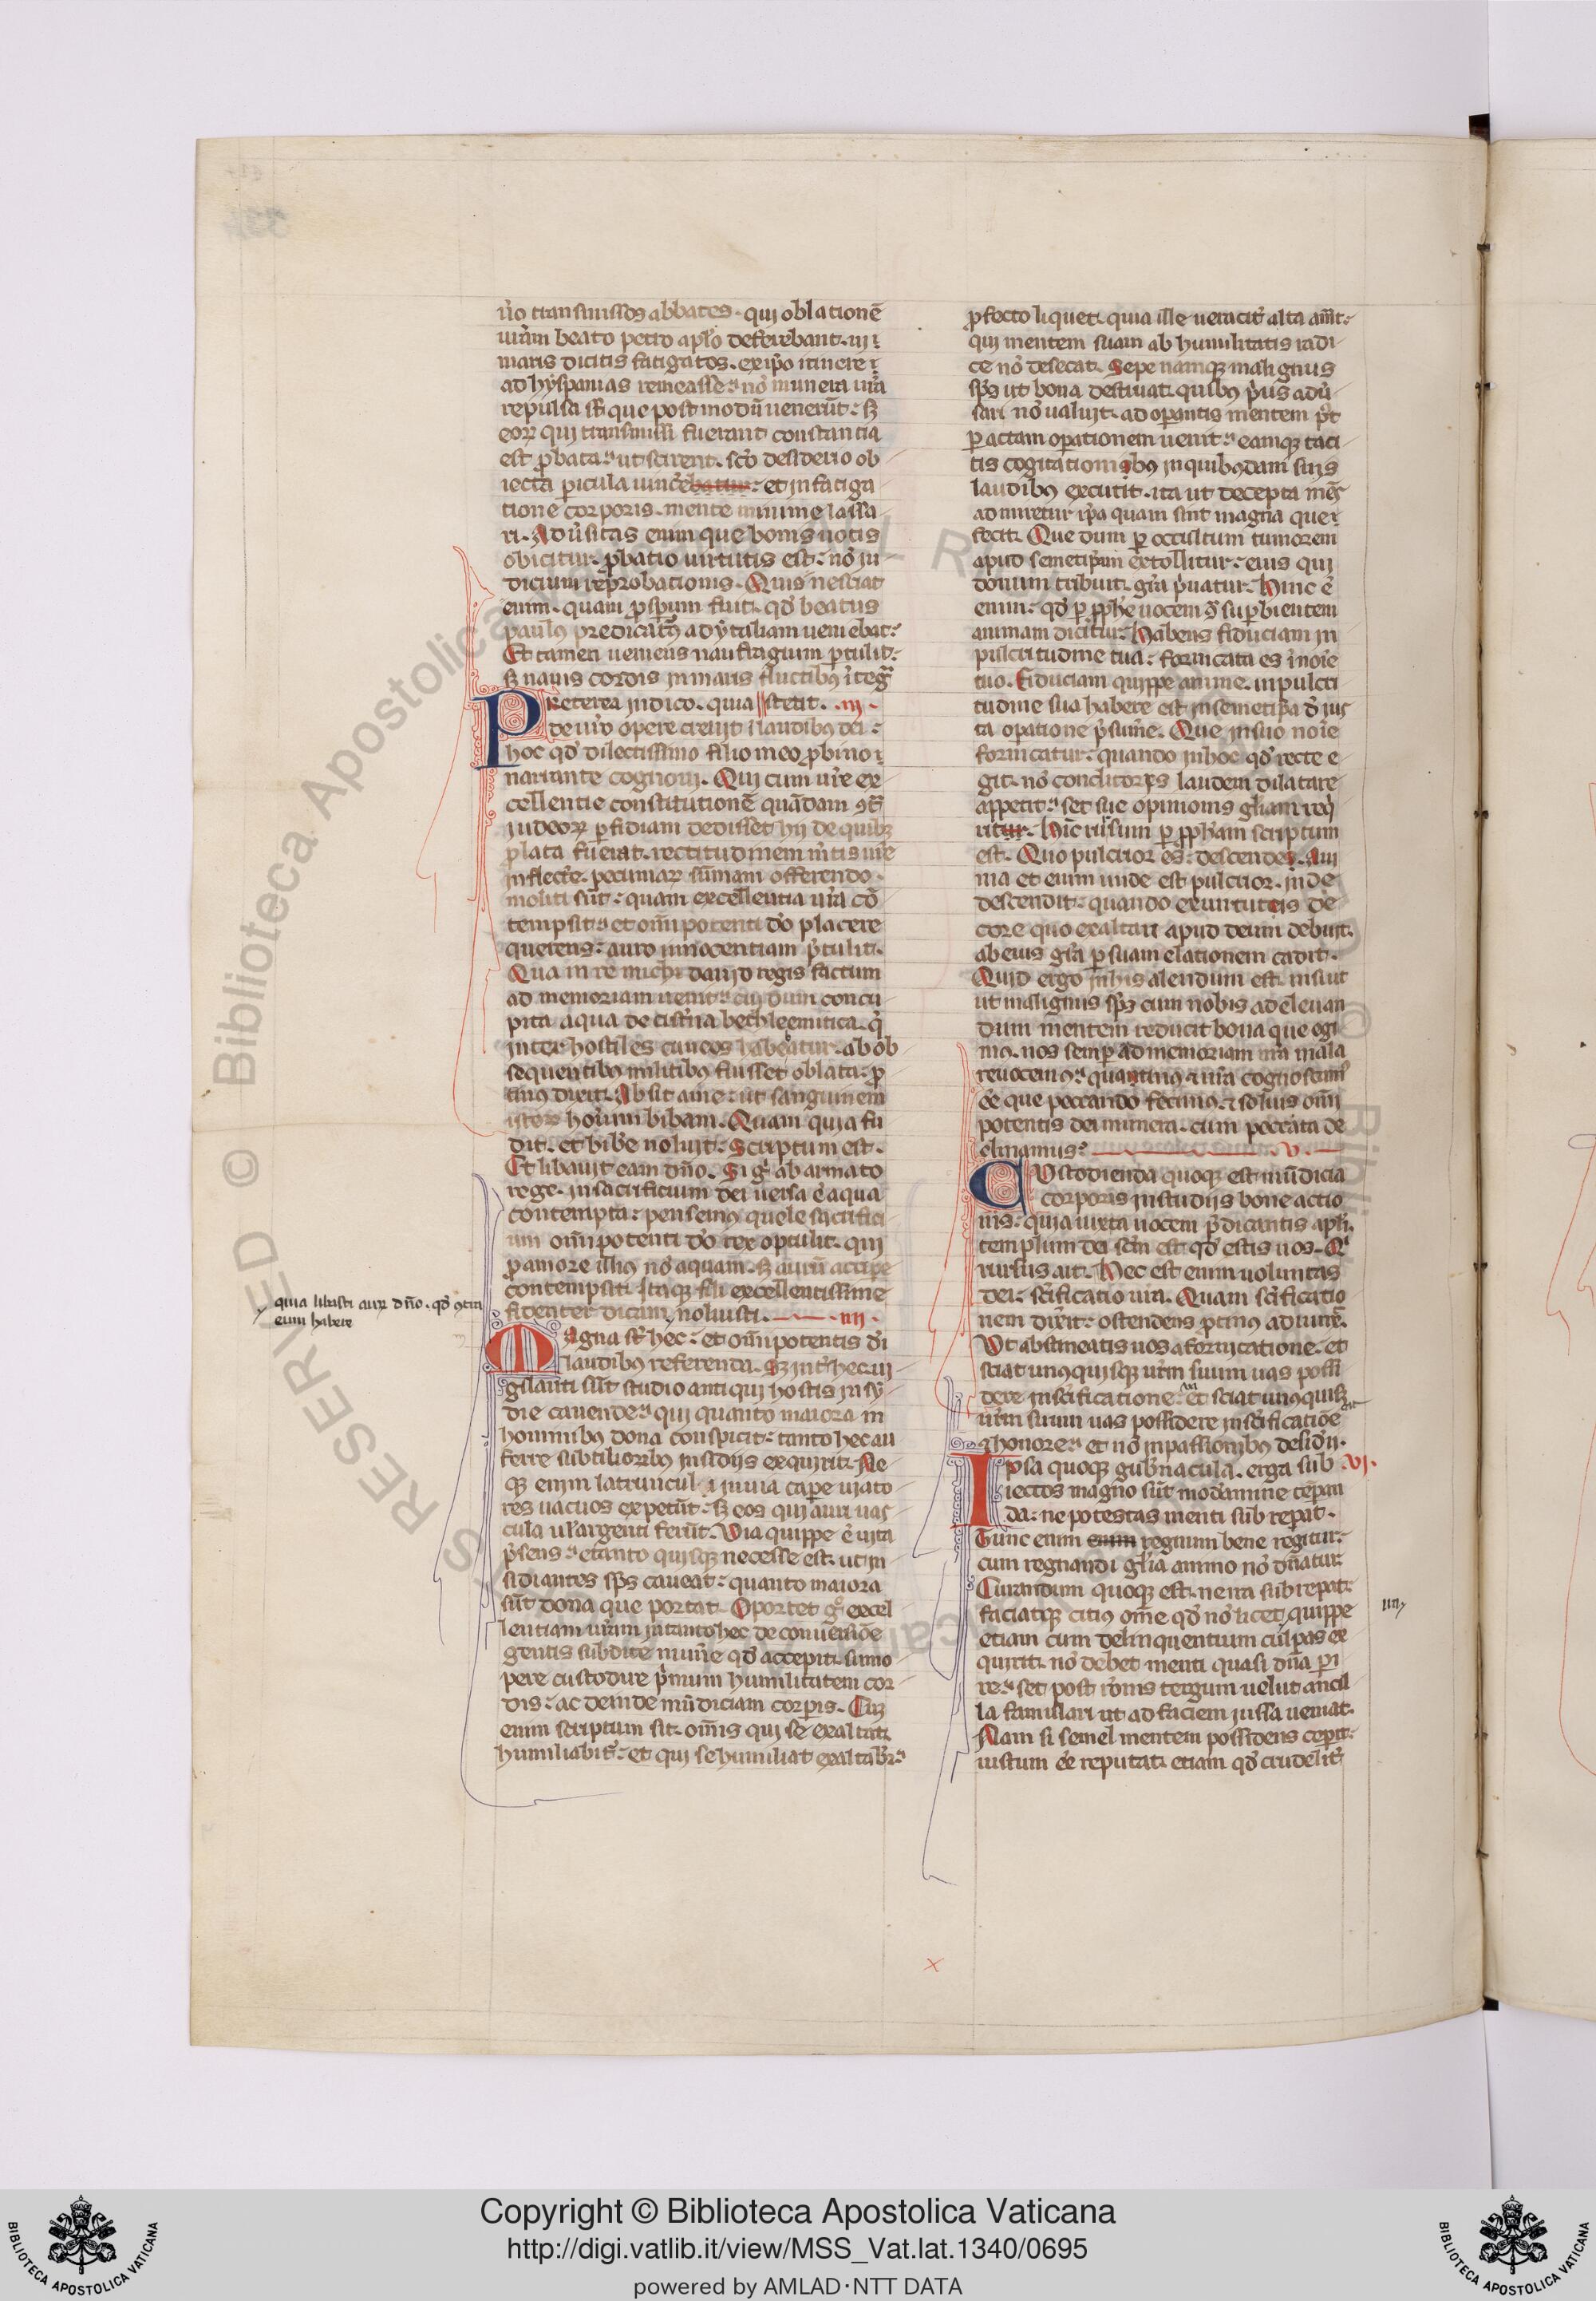 ũo transmissos abbates. qui oblationē
uṙam beato petro apl̃o deferebant. ui ı̇
maris dicitis fatigatos. ex ip̃o itinere ı̇
ad hyspanias remeasse. nõ munera uṙa
repulsa sṫ que postmodũ uenerũt. sꝫ
eoꝝ qui transmissi fuerant constantia
est ꝓbata. ut scirent. sc̃o desiderio ob
iecta ꝑicula uincẽbatur. et in fatiga
tione corporis. mente minime lassa
ri. Adũsitas enim que bonis uotis
obicitur. ꝓbatio uirtutis est. nõ iu
dicium reprobationis. Quis nesciat
enim. quam ꝓsꝑum fuit. qđ beatus
paulꝰ predicatuꝝ ad ytaliam ueniebat.
Et tamen ueniens naufragium ꝑtulit.
sꝫ nauis cordis in maris fluctibꝰ ı̇tegͣ
Preterea indico. quia stetit. .iii.
de uṙo opere creuit ı̇ laudibꝰ dei.
hoc qđ dilectissimo filio meo ꝓbino ı̇
narrante cognoui. Qui cum uṙe ex
cellentie constitutionē quãdam ꝯtͣ
iudeoꝝ ꝑfidiam dedisset. hii de quibꝫ
ꝓlata fuerat. rectitudinem m̃tis uṙe
inflect̃e. pecuniaꝝ sũmam offerendo.
moliti sũt. quam excellentia uṙa cõ
tempsit. et om̃ipotenti do placere
querens. auro innocentiam p̃tulit.
Qua in re michi dauid regis factum
ad memoriam uenit. cui dum concu
pita aqua de cist̃na bethleemitica. q̃
inter hostiles cuneos habebatur. ab ob
sequentibꝰ militibꝰ fuisset oblata. ꝓ
tinꝰ dixit. Absit a me. ut sanguinem
istoꝝ hoĩum bibam. Quam quia fu
dit. et bib̃e noluit. Scriptum est.
Et libauit eam dño. Si gͦ ab armato
rege. in sacrificium dei uersa ẽ aqua
contempta. pensemꝰ quale sacrifici
um om̃ipotenti do rex optulit. qui
ꝓ amore illiꝰ nõ aquam. sꝫ aurũ accipe
contempsit. Itaqꝫ fili excellentissime
fidenter dicam, noluisti. .iiii.
quia libasti auꝝ dño. qđ ꝯtra
eum habere
Magna sṫ hec. et om̃ipotentis di
laudibꝰ referenda. sꝫ int̃ hec ui
gilanti sũt studio antiqui hostis insy
die cauende. qui quanto maiora in
hominibꝰ dona conspicit. tanto hec au
ferre subtilioribꝰ insidiis exquirit. Ne
qꝫ enim latrunculi in uia cape uiato
res uacuos expetũt. sꝫ eos qui auri uas
cula ul̃ argenti ferũt. Via quippe ẽ uita
p̃sens. et tanto quisqꝫ necesse est. ut in
sidiantes sp̃s caueat. quanto maiora
sũt dona que portat. Oportet gͦ excel
lentiam uṙam in tanto hec de conuersiõe
gentis subdite mun̄e qđ accepit. sũmo
pere custodire p̃mum humilitatem cor
dis. ac deinde mũdiciam corꝑis. Cũ
enim scriptum sit. om̃is qui se exaltat
humiliabit̃. et qui se humiliat exaltabit̃.
ꝓfecto liquet. quia ille ueracit̃ alta amat.
qui mentem suam ab humilitatis radi
ce nõ desecat. Sepe namqꝫ malignus
sp̃s ut bona destruat. quibꝰ p̃us adũ
sari nõ ualuit. ad oꝑantis mentem p̃t
ꝑactam oꝑationem uenit. eamqꝫ taci
tis cogitationibꝰ in quibusdam suis
laudibꝰ excutit. ita ut decepta mẽs
admiretur ip̃a quam sint magna que ı̇
fecit. Que dum ꝑ occultum tumorem
apud semetip̃am extollitur. eius qui
donum tribuit. gr̃a p̃uatur. Hinc ẽ
enim. qđ ꝑ ꝓph̃e uocem đ suꝑbientem
animam dicitur. Habens fiduciam in
pulcritudine tua. fornicata es ı̇ noĩe
tuo. Fiduciam quippe anime. in pulcri
tudine sua habere est in semetip̃a đ ius
ta oꝑatione p̃sum̃e. Que in suo noĩe
fornicatur. quando in hoc qđ recte e
git. nõ conditoris laudem dilatare
appetit. set sue opinionis gl̃iam req̃
ritur. Hĩc rursum ꝑ ꝓph̃am scriptum
est. Quo pulcrior es. descende. Ani
ma et enim unde est pulcrior. inde
descendit. quando ex uirtutis de
core quo exaltari apud deum debuit.
ab eius gr̃a ꝑ suam elationem cadit.
Quid ergo in his agendum est. nisi ut
ut malignus sp̃s cum nobis ad eleuan
dum mentem reducit bona que egi
mꝰ. nos semꝑ ad memoriam nṙa mala
reuocemꝰ. quatinꝰ ⁊ nṙa cognoscamꝰ
ẽe que peccando fecimꝰ. ⁊ solius om̃i
potentis dei munera. cum peccata de
clinamus. .v.
Custodienda quoqꝫ est mũdicia
corporis in studiis bone actio
nis. quia iuxta uocem p̃dicantis apl̃i.
templum dei sc̃m est qđ estis uos. Qͥ
rursus ait. Hec est enim uoluntas
dei. sc̃ificatio uṙa. Quam sc̃ificatio
nem dix̃it. ostendens ꝓtinꝰ adiunx̃.
Vt abstineatis uos a fornicatione. et
sciat unꝰquisqꝫ uṙm suum uas possi
dere in sc̃ificatione. et sciat unꝰquisqꝫ
uṙm suum uas possidere in sc̃ificatiõe
⁊ honore. et nõ in passionibꝰ desid̃ii.
Ipsa quoqꝫ gub̃nacula. erga sub .vi.
iectos magno sũt modamine teꝑan
da. ne potestas menti subrepat.
Tunc enim eum regnum bene regitur.
cum regnandi gl̃ia animo nõ dñatur.
Curandum quoqꝫ est. ne ira subrepat.
faciatqꝫ citiꝰ om̃e qđ nõ licet, quippe
iiii
etiam cum delinquentium culpas ex
quirit. nõ debet menti quasi dña p̃i
re. set post rõnis tergum uelut ancil
la famulari ut ad faciem iussa ueniat.
Nam si semel mentem possidens ceperit.
iustum ẽe reputat. etiam qđ crudelit̃
x
Copyright © Biblioteca Apostolica Vaticana
http://digi.vatlib.it/view/MSS_Vat.lat.1340/0695
powered by AMLAD·NTT DATA
BIBLIOTECA APOSTOLICA VATICANA
BIBLIOTECA APOSTOLICA VATICANA